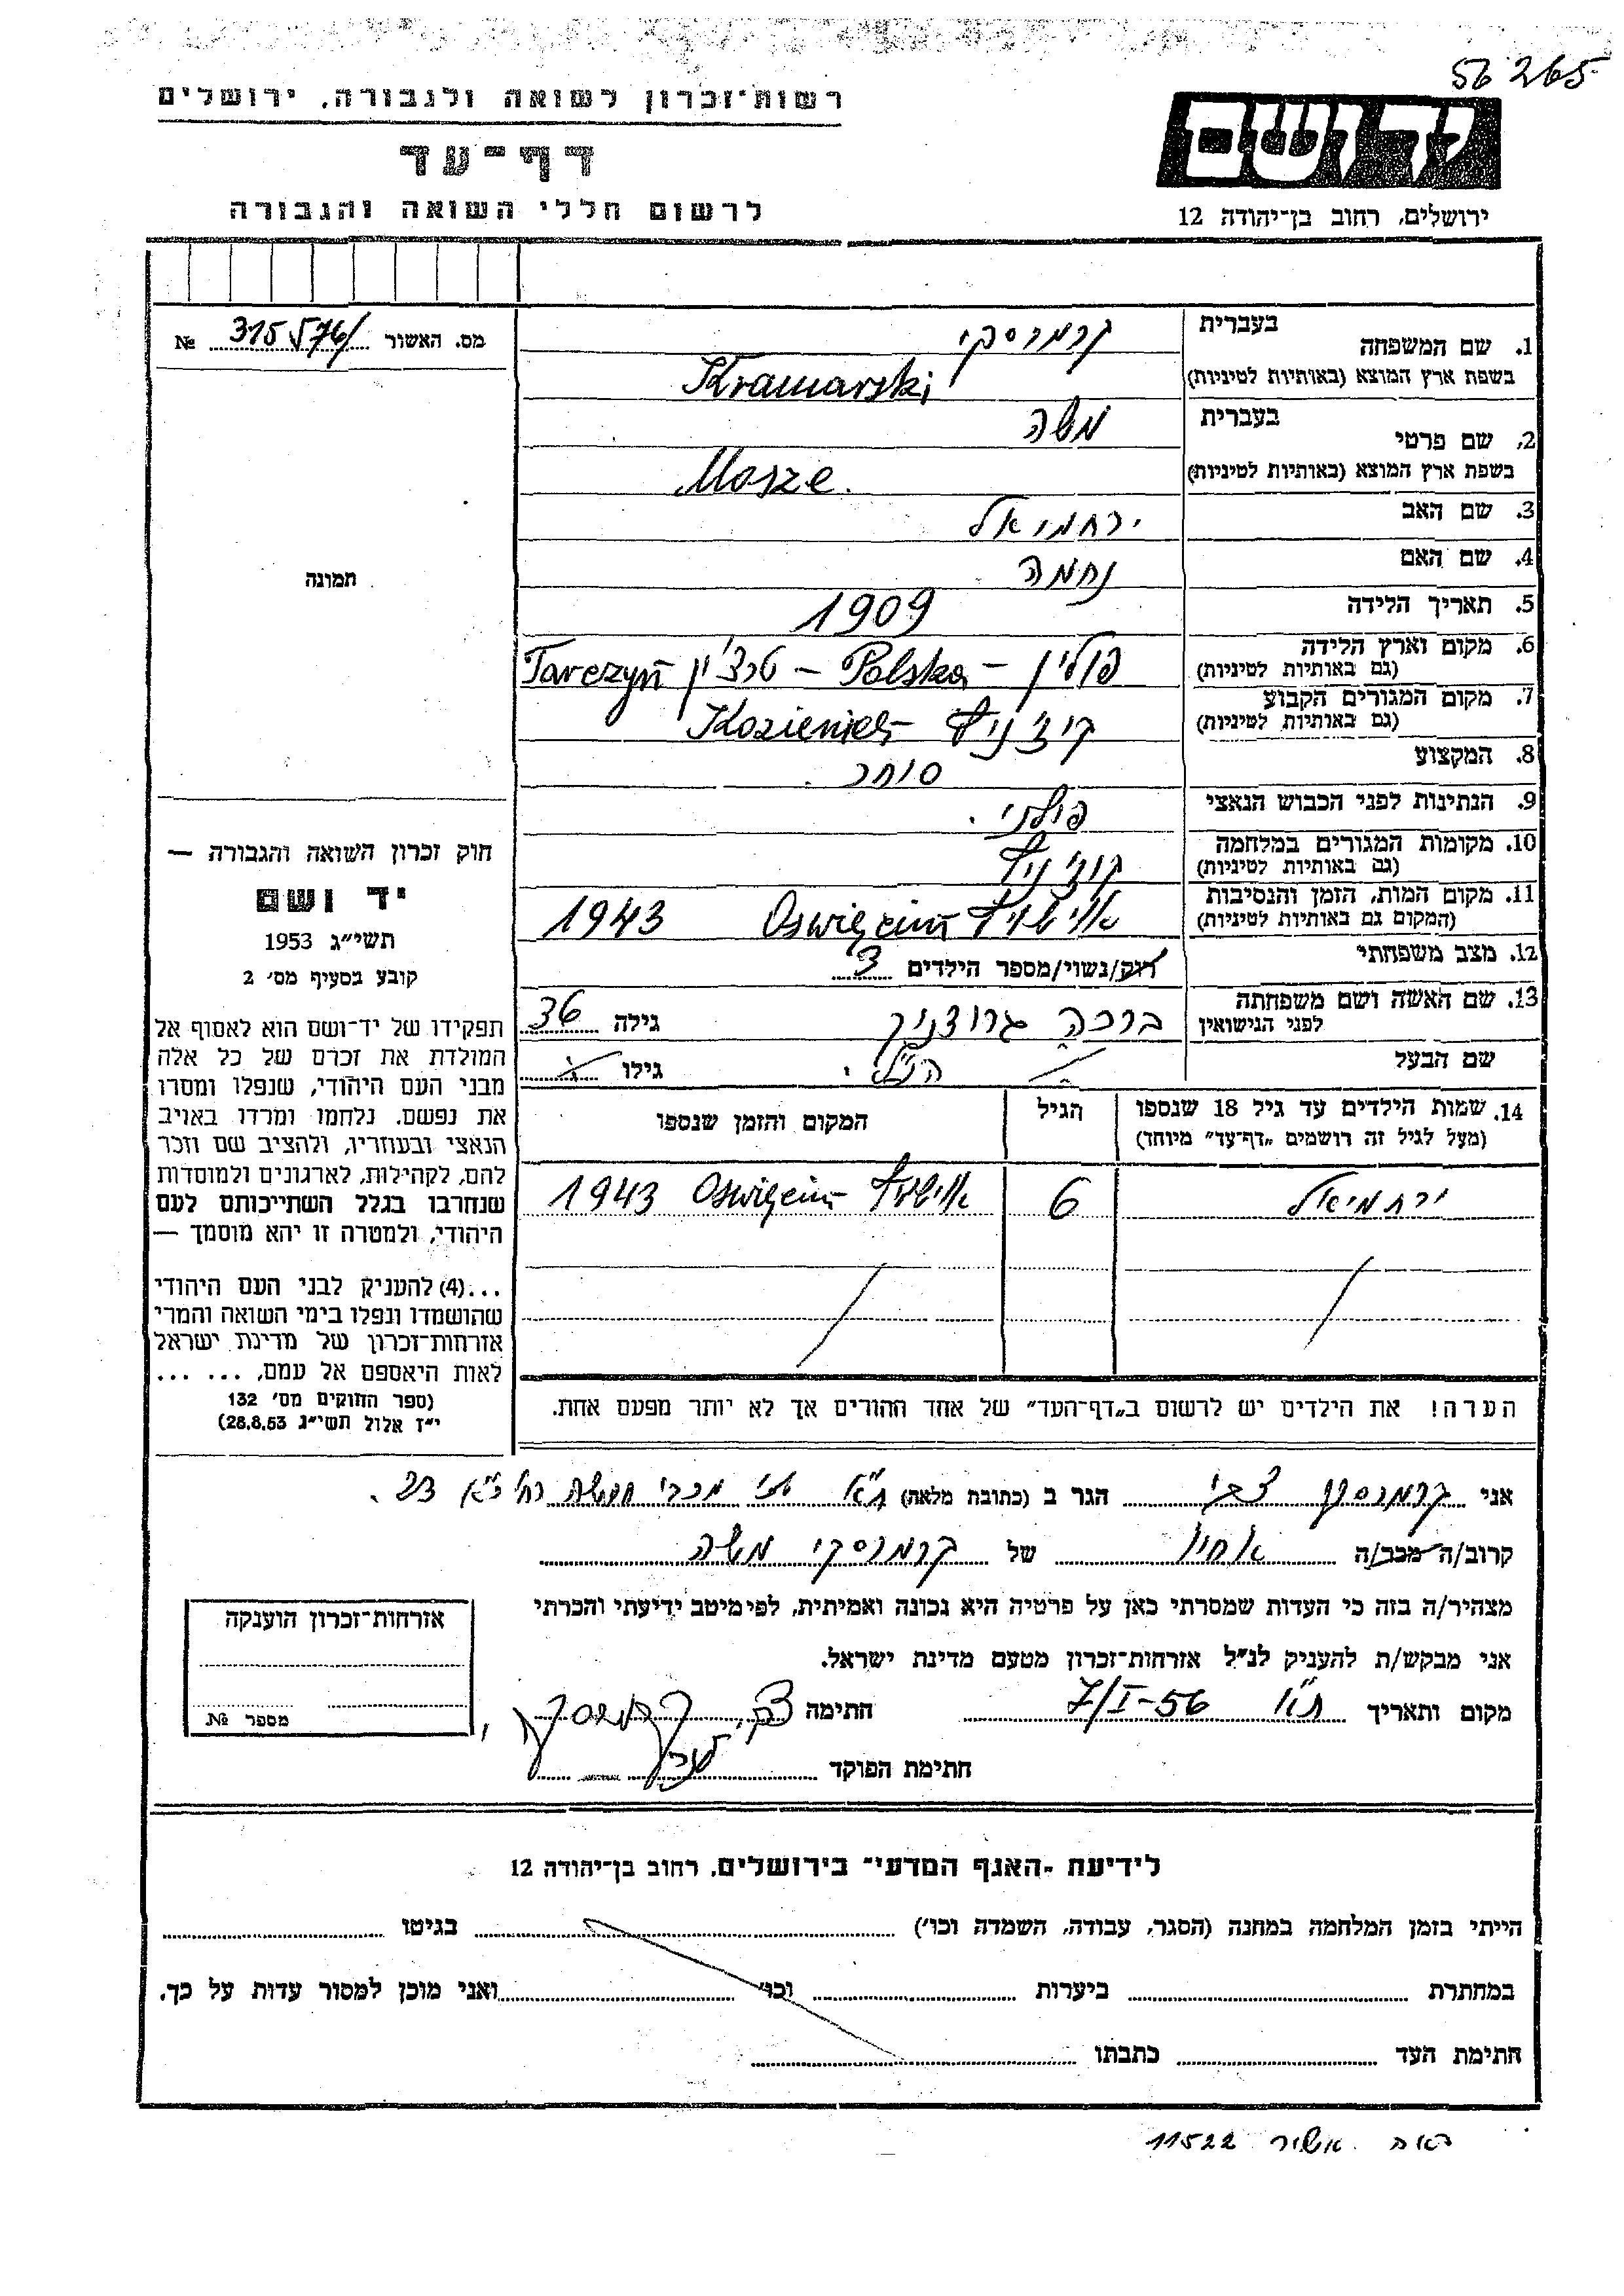 56265
רשות־זכרון לשואה ולגבורה, ירושלים
יד ושם
דף־עד
לרשום חללי השואה והגבורה
ירושלים, רחוב בן־יהודה 12
1. שם המשפחה בעברית קרמרסקי
בשפת ארץ המוצא (באותיות לטיניות) Kramarski
2. שם פרטי בעברית משה
בשפת ארץ המוצא (באותיות לטיניות) Mosze.
3. שם האב ירחמיאל
4. שם האם נחמה
5. תאריך הלידה 1909
6. מקום וארץ הלידה (גם באותיות לטיניות) פולין – Polska – טרצ'ין Tarczyń
7. מקום המגורים הקבוע (גם באותיות לטיניות) קוז'ניץ – Kozienice
8. המקצוע סוחר.
9. הנתינות לפני הכבוש הנאצי פולני.
10. מקומות המגורים במלחמה (גם באותיות לטיניות) קוז'ניץ
11. מקום המות, הזמן והנסיבות (המקום גם באותיות לטיניות) אושוויץ Oswięcim 1943
12. מצב משפחתי רווק/נשוי/מספר הילדים 3
13. שם האשה ושם משפחתה לפני הנישואין ברכה גרוצניק גילה 36
שם הבעל הנ"ל. גילו
14. שמות הילדים עד גיל 18 שנספו (מעל לגיל זה רושמים „דף־עד” מיוחד) הגיל המקום והזמן שנספו
ירחמיאל 6 אושוויץ Oswięcim 1943
הערה! את הילדים יש לרשום ב„דף־העד” של אחד ההורים אך לא יותר מפעם אחת.
מס. האשור 315576/ №
תמונה
חוק זכרון השואה והגבורה —
יד ושם
תשי״ג 1953
קובע בסעיף מס׳ 2
תפקידו של יד־ושם הוא לאסוף אל
המולדת את זכרם של כל אלה
מבני העם היהודי, שנפלו ומסרו
את נפשם, נלחמו ומרדו באויב
הנאצי ובעוזריו, ולהציב שם וזכר
להם, לקהילות, לארגונים ולמוסדות
שנחרבו בגלל השתייכותם לעם
היהודי, ולמטרה זו יהא מוסמך —
...(4) להעניק לבני העם היהודי
שהושמדו ונפלו בימי השואה והמרי
אזרחות־זכרון של מדינת ישראל
לאות היאספם אל עמם, ... ...
(ספר החוקים מס׳ 132
י״ז אלול תשי״ג 28.8.53)
אני קרמרסקי צבי הגר ב (כתובת מלאה) ת"א
קרוב/ה מכר/ה אחיו של קרמרסקי משה
מצהיר/ה בזה כי העדות שמסרתי כאן על פרטיה היא נכונה ואמיתית, לפי מיטב ידיעתי והכרתי
אני מבקש/ת להעניק לנ״ל אזרחות־זכרון מטעם מדינת ישראל.
מקום ותאריך ת"א 7/I-56 חתימה צבי קרמרסקי
חתימת הפוקד
אזרחות־זכרון הוענקה
מספר №
לידיעת „האגף המדעי” בירושלים, רחוב בן־יהודה 12
הייתי בזמן המלחמה במחנה (הסגר, עבודה, השמדה וכו׳) בגיטו
במחתרת ביערות וכו׳ ואני מוכן למסור עדות על כך.
חתימת העד כתבתו
11522